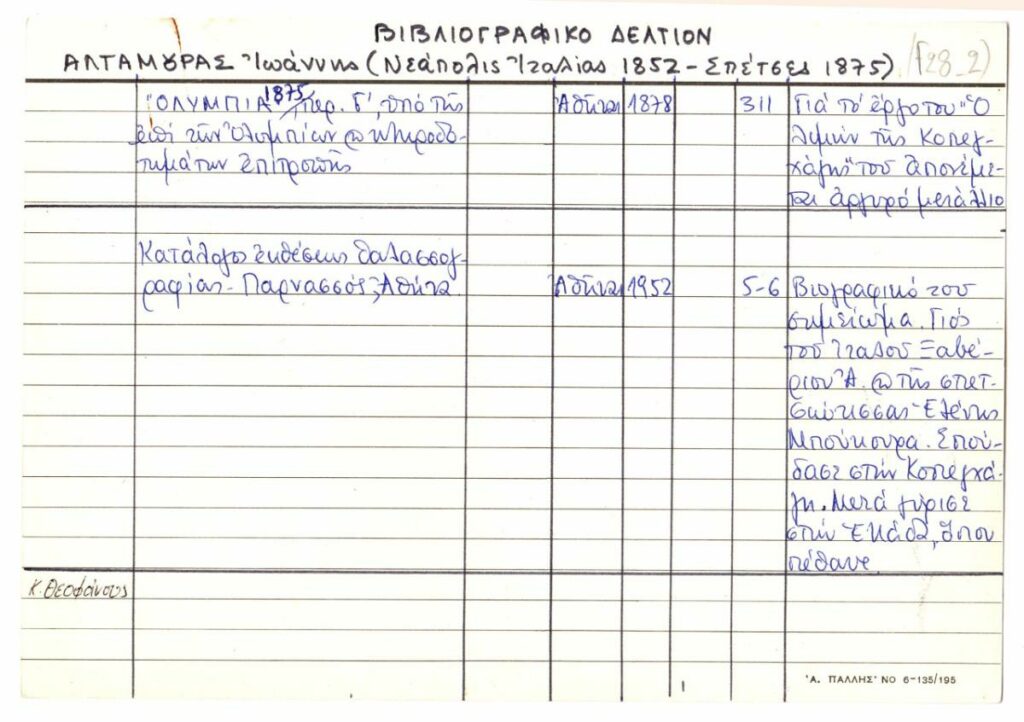 ΒΙΒΛΙΟΓΡΑΦΙΚΟ ΔΕΛΤΙΟΝ
ΑΛΤΑΜΟΥΡΑΣ Ἰωάννης (Νεάπολις Ἰταλίας 1852 - Σπέτσες 1875) (Γ28_2)
"ΟΛΥΜΠΙΑ" 1875 περ. Γ', ὑπό τῆς Ἀθῆναι 1878 311 Γιά τό ἔργο του "Ὁ
ἐπί τῶν Ὀλυμπίων κληροδο- λιμήν τῆς Κοπεγ-
τημάτων ἐπιτροπῆς χάγης" τοῦ ἀπονέμε-
ται ἀργυρό μετάλλιο
Κατάλογος ἐκθέσεως θαλασσογ-
ραφίας - Παρνασσός, Ἀθήνα Ἀθῆναι 1952 5-6 Βιογραφικό του
σημείωμα. Γιός
τοῦ Ἰταλοῦ Ξαβέ-
ριου Ἀ. κ τῆς σπετ-
σιώτισσας Ἑλένης
Μπούκουρα. Σπού-
δασε στήν Κοπεγχά-
γη. Μετά γύρισε
στήν Ἑλλάδα, ὅπου
πέθανε
Κ. Θεοφάνους
'Α. ΠΑΛΛΗΣ' ΝΟ 6-135/195